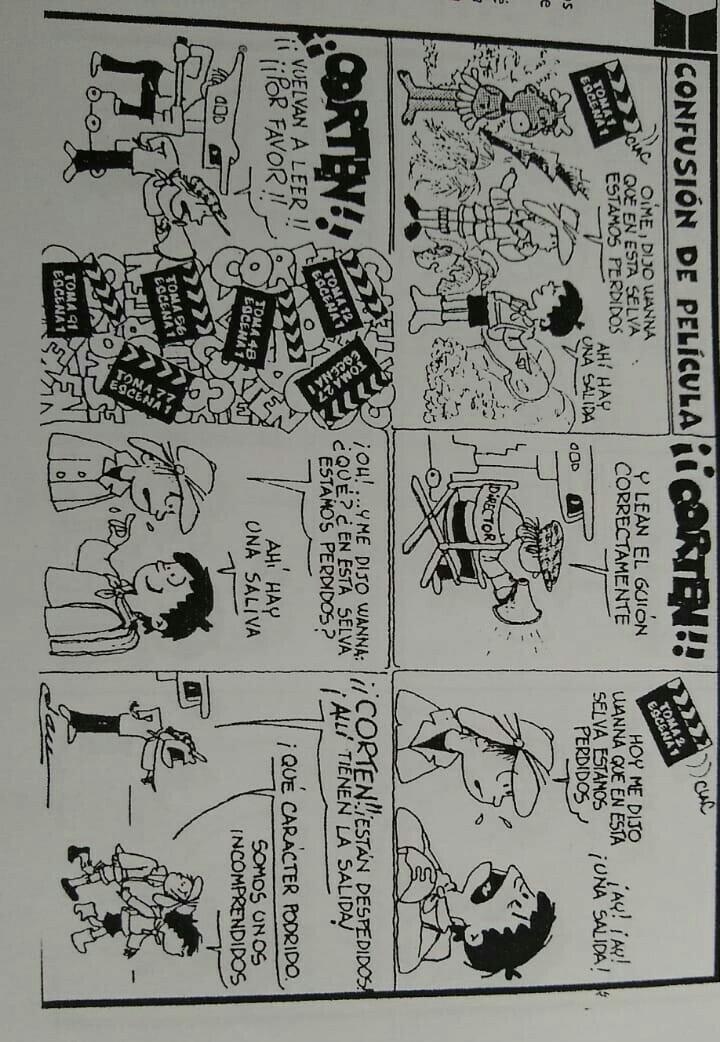 CONFUSIÓN DE PELÍCULA
TOMA 1
ESCENA 1
CLAC
OÍME, DIJO WANNA
QUE EN ESTA SELVA
ESTAMOS PERDIDOS
AHÍ HAY
UNA SALIDA
¡¡CORTEN!!
Y LEAN EL GUIÓN
CORRECTAMENTE
DIRECTOR
TOMA 2
ESCENA 1
CLAC
HOY ME DIJO
WANNA QUE EN ESTA
SELVA ESTAMOS
PERDIDOS
¡AY! ¡AY!
¡UNA SALIDA!
¡¡CORTEN!!
¡¡VUELVAN A LEER!!
¡¡POR FAVOR!!
TOMA 12
ESCENA 1
TOMA 27
ESCENA 1
TOMA 48
ESCENA 1
TOMA 56
ESCENA 1
TOMA 77
ESCENA 1
TOMA 91
ESCENA 1
¡OH!...Y ME DIJO WANNA:
¿QUÉ? ¿EN ESTA SELVA
ESTAMOS PERDIDOS?
AHÍ HAY
UNA SALIVA
¡¡CORTEN!! ¡ESTÁN DESPEDIDOS!
¡AHÍ TIENEN LA SALIDA!
¡QUÉ CARÁCTER PODRIDO,
SOMOS UNOS
INCOMPRENDIDOS